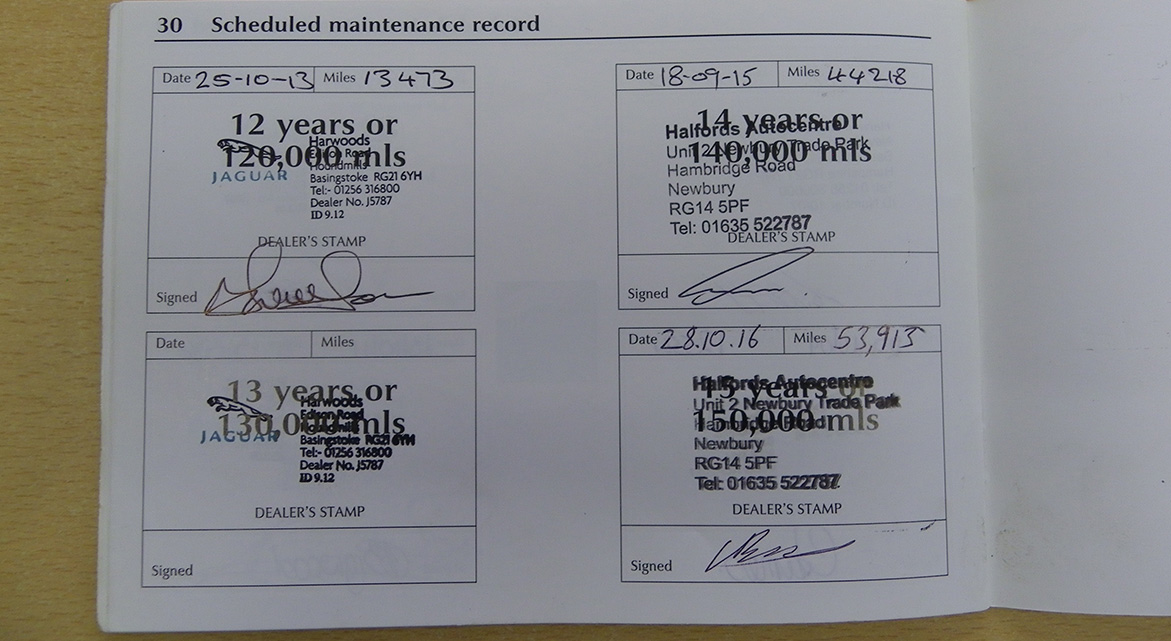 30 Scheduled maintenance record
Date 25-10-13 Miles 13473
12 years or
120,000 mls
JAGUAR
Harwoods
Edison Road
Houndmills
Basingstoke RG21 6YH
Tel:- 01256 316800
Dealer No. J5787
ID 9.12
DEALER'S STAMP
Signed
Date Miles
13 years or
130,000 mls
JAGUAR
Harwoods
Edison Road
Houndmills
Basingstoke RG21 6YH
Tel:- 01256 316800
Dealer No. J5787
ID 9.12
DEALER'S STAMP
Signed
Date 18-09-15 Miles 44218
14 years or
140,000 mls
Halfords Autocentre
Unit 2 Newbury Trade Park
Hambridge Road
Newbury
RG14 5PF
Tel: 01635 522787
DEALER'S STAMP
Signed
Date 28.10.16 Miles 53,915
15 years or
150,000 mls
Halfords Autocentre
Unit 2 Newbury Trade Park
Hambridge Road
Newbury
RG14 5PF
Tel: 01635 522787
DEALER'S STAMP
Signed